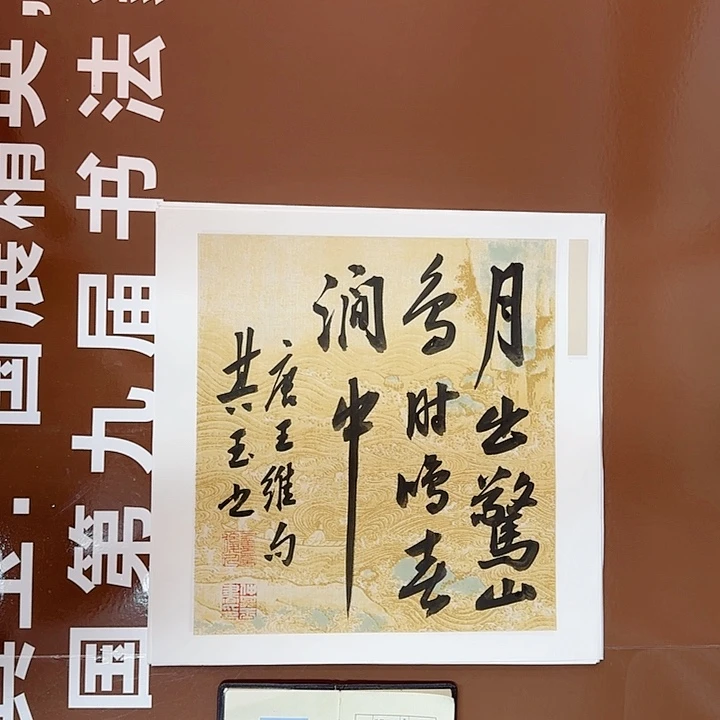 月出惊山
鸟时鸣春
涧中
唐王维句
其玉书
国第九届书法
国展精英